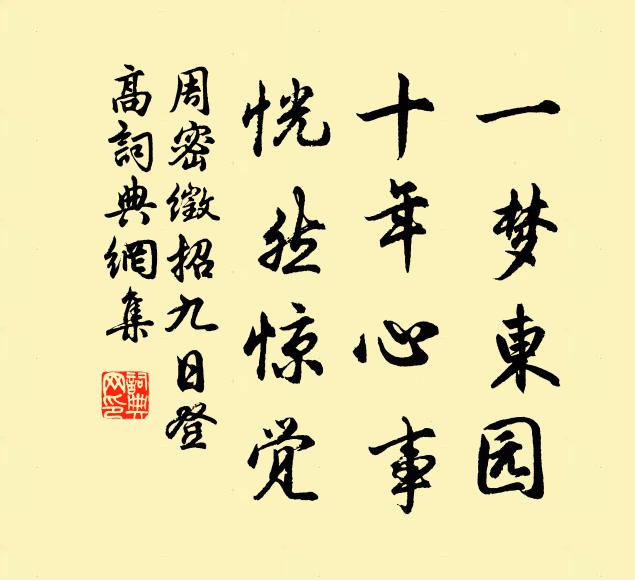 一梦东园
十年心事
恍然惊觉
周密徵招九日登
高詞典網集
詞典
网印